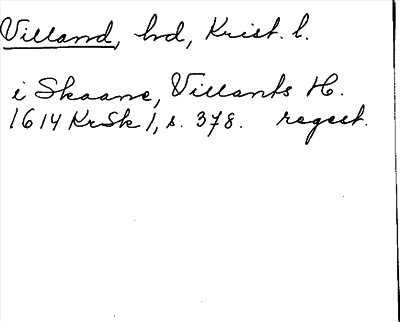 Villand, hd, Krist. l.
i Skaane, Villants H.
1614 KrSk 1, s. 378. regest.